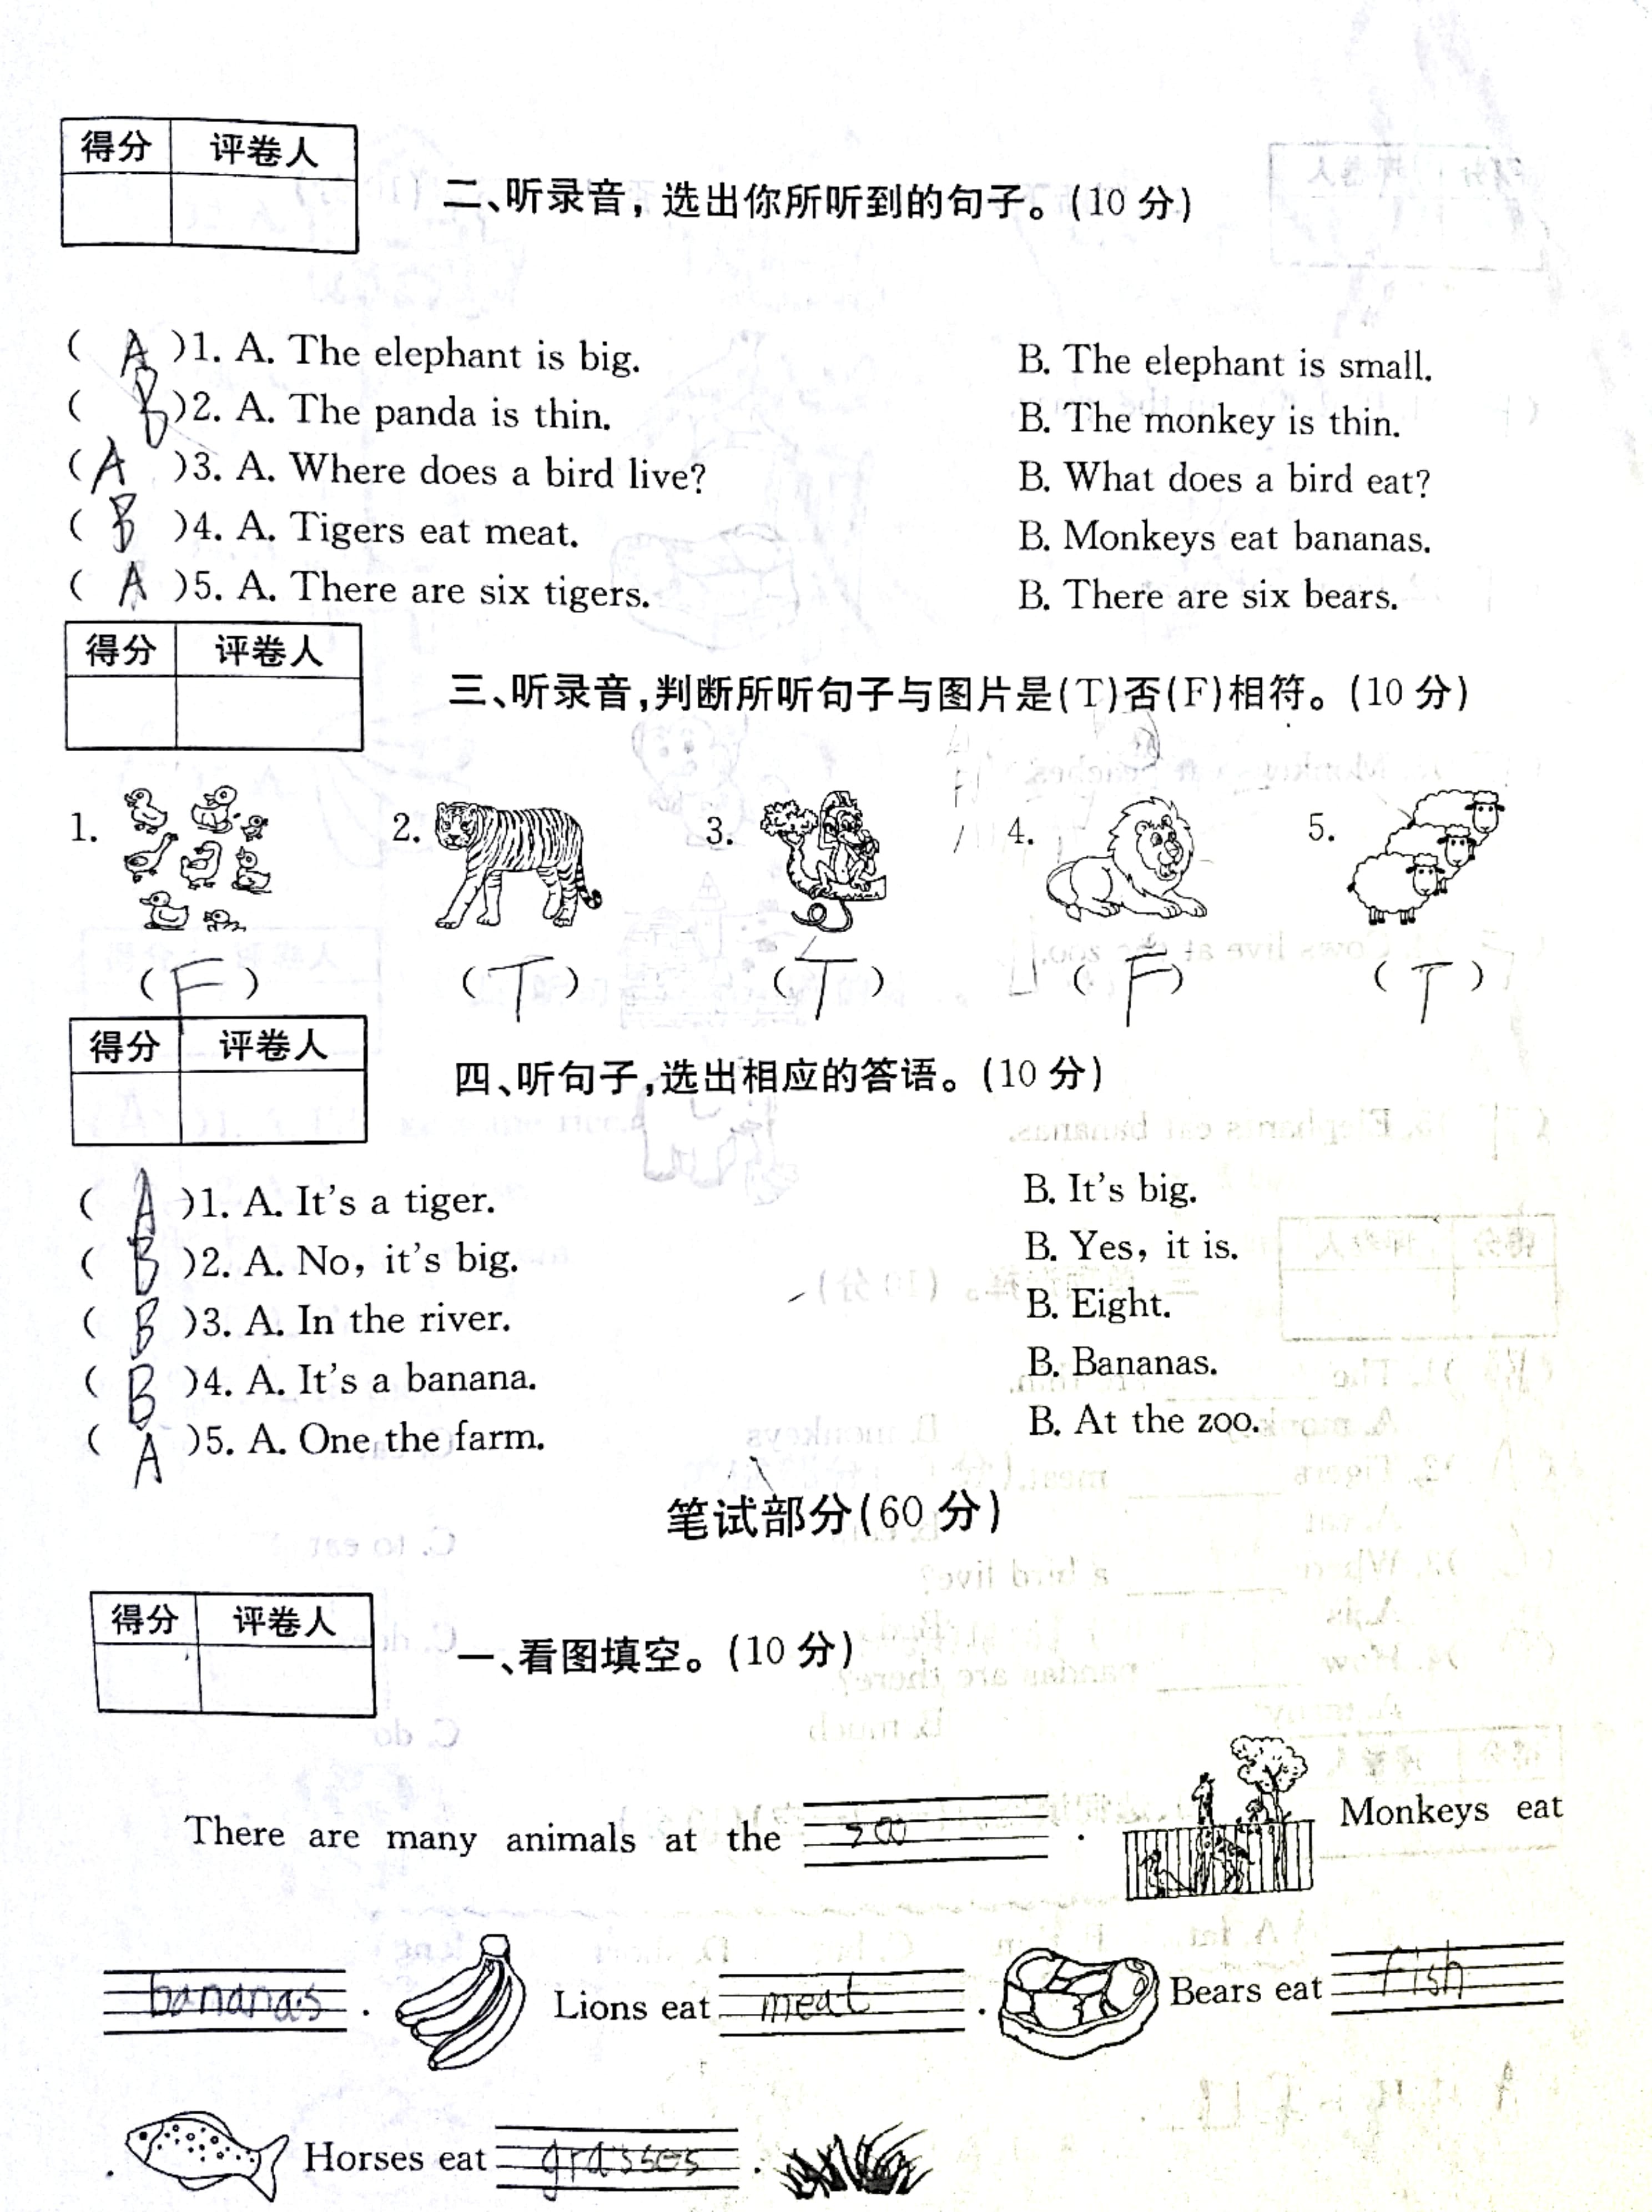 得分 评卷人
二、听录音，选出你所听到的句子。(10 分)
( A )1. A. The elephant is big. B. The elephant is small.
( B )2. A. The panda is thin. B. The monkey is thin.
( A )3. A. Where does a bird live? B. What does a bird eat?
( B )4. A. Tigers eat meat. B. Monkeys eat bananas.
( A )5. A. There are six tigers. B. There are six bears.
得分 评卷人
三、听录音,判断所听句子与图片是(T)否(F)相符。(10 分)
1. 2. 3. 4. 5.
( F ) ( T ) ( T ) ( F ) ( T )
得分 评卷人
四、听句子,选出相应的答语。(10 分)
( A )1. A. It's a tiger. B. It's big.
( B )2. A. No, it's big. B. Yes, it is.
( B )3. A. In the river. B. Eight.
( B )4. A. It's a banana. B. Bananas.
( A )5. A. One the farm. B. At the zoo.
笔试部分(60 分)
得分 评卷人
一、看图填空。(10 分)
There are many animals at the zoo . Monkeys eat
bananas . Lions eat meat . Bears eat fish
. Horses eat grasses .